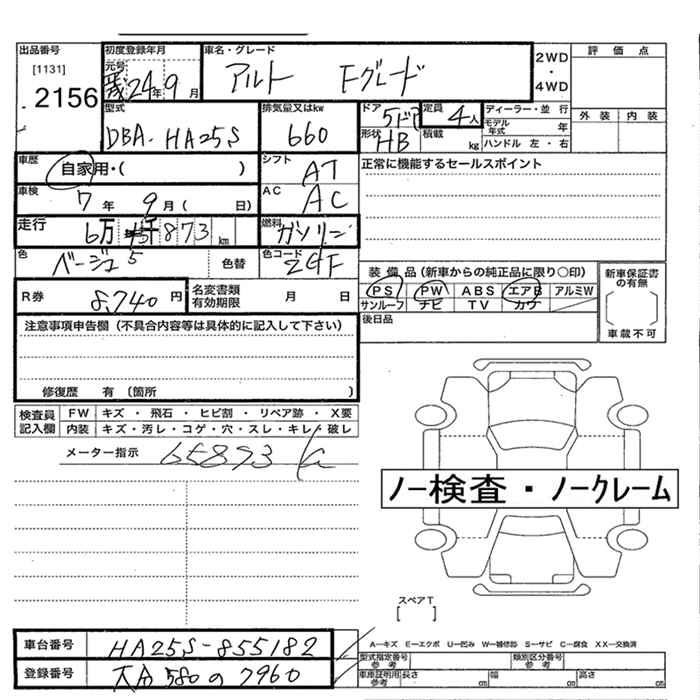 出品番号
[1131]
2156
初度登録年月
元号
24年9月
車名・グレード
アルト Fグレード
2WD
・
4WD
評価点
外装 内装
型式
DBA-HA25S
排気量又はkw
660
ドア
5ドア
形状
HB
定員
4人
積載
kg
ディーラー・並行
モデル年式 年
ハンドル 左・右
車歴
自家用・( )
シフト
AT
正常に機能するセールスポイント
車検
7年9月( 日)
AC
AC
走行
6万5千873km
燃料
ガソリン
色
ベージュ
色替
色コード
R券
8,740円
名変書類有効期限 月 日
装備品(新車からの純正品に限り○印)
PS PW ABS エアB アルミW
サンルーフ ナビ TV カワ
新車保証書の有無
[ ]
車載不可
後日品
注意事項申告欄(不具合内容等は具体的に記入して下さい)
修復歴 有〔箇所 )
検査員記入欄
FW キズ・飛石・ヒビ割・リペア跡・X要
内装 キズ・汚レ・コゲ・穴・スレ・キレ・破レ
メーター指示
65873
ノー検査・ノークレーム
スペアT
[ ]
車台番号 HA25S-855182
登録番号 大分 580 の 7960
A-キズ E-エクボ U-凹み W-補修跡 S-サビ C-腐食 XX-交換済
型式指定番号 参考
類別区分番号 参考
車庫証明用 参考 長さ cm 幅 cm 高さ cm